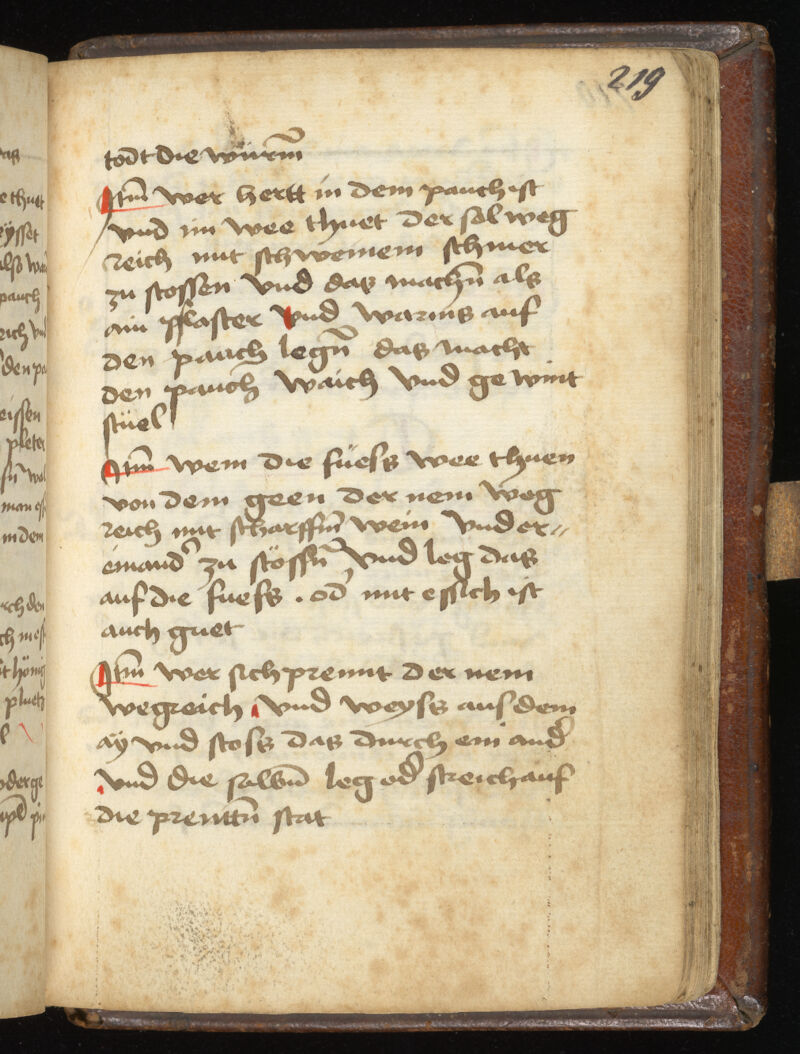 219
todt die würm̄
Itm̄ wer hertt in dem pauch ist
vnd im wee thuet der sol weg
reich mit schweinem schmer
zu stossen vnd das machn̄ als
ain pflaster vnd warms auf
den pauch legn̄ das macht
den pauch waich vnd gewint
stüel
Itm̄ wem die füess wee thuen
von dem geen der nem weg
reich mit scharffm̄ wein vnder〃
einand͛ zu stössn̄ vnd leg das
auf die fuess . od͛ mit essich ist
auch guet
Itm̄ wer sich prennt der nem
wegreich vnd weyss aus dem
ay vnd stoss das durch ein and͛
vnd die salbn̄ leg od͛ streich auf
die prenttn̄ stat